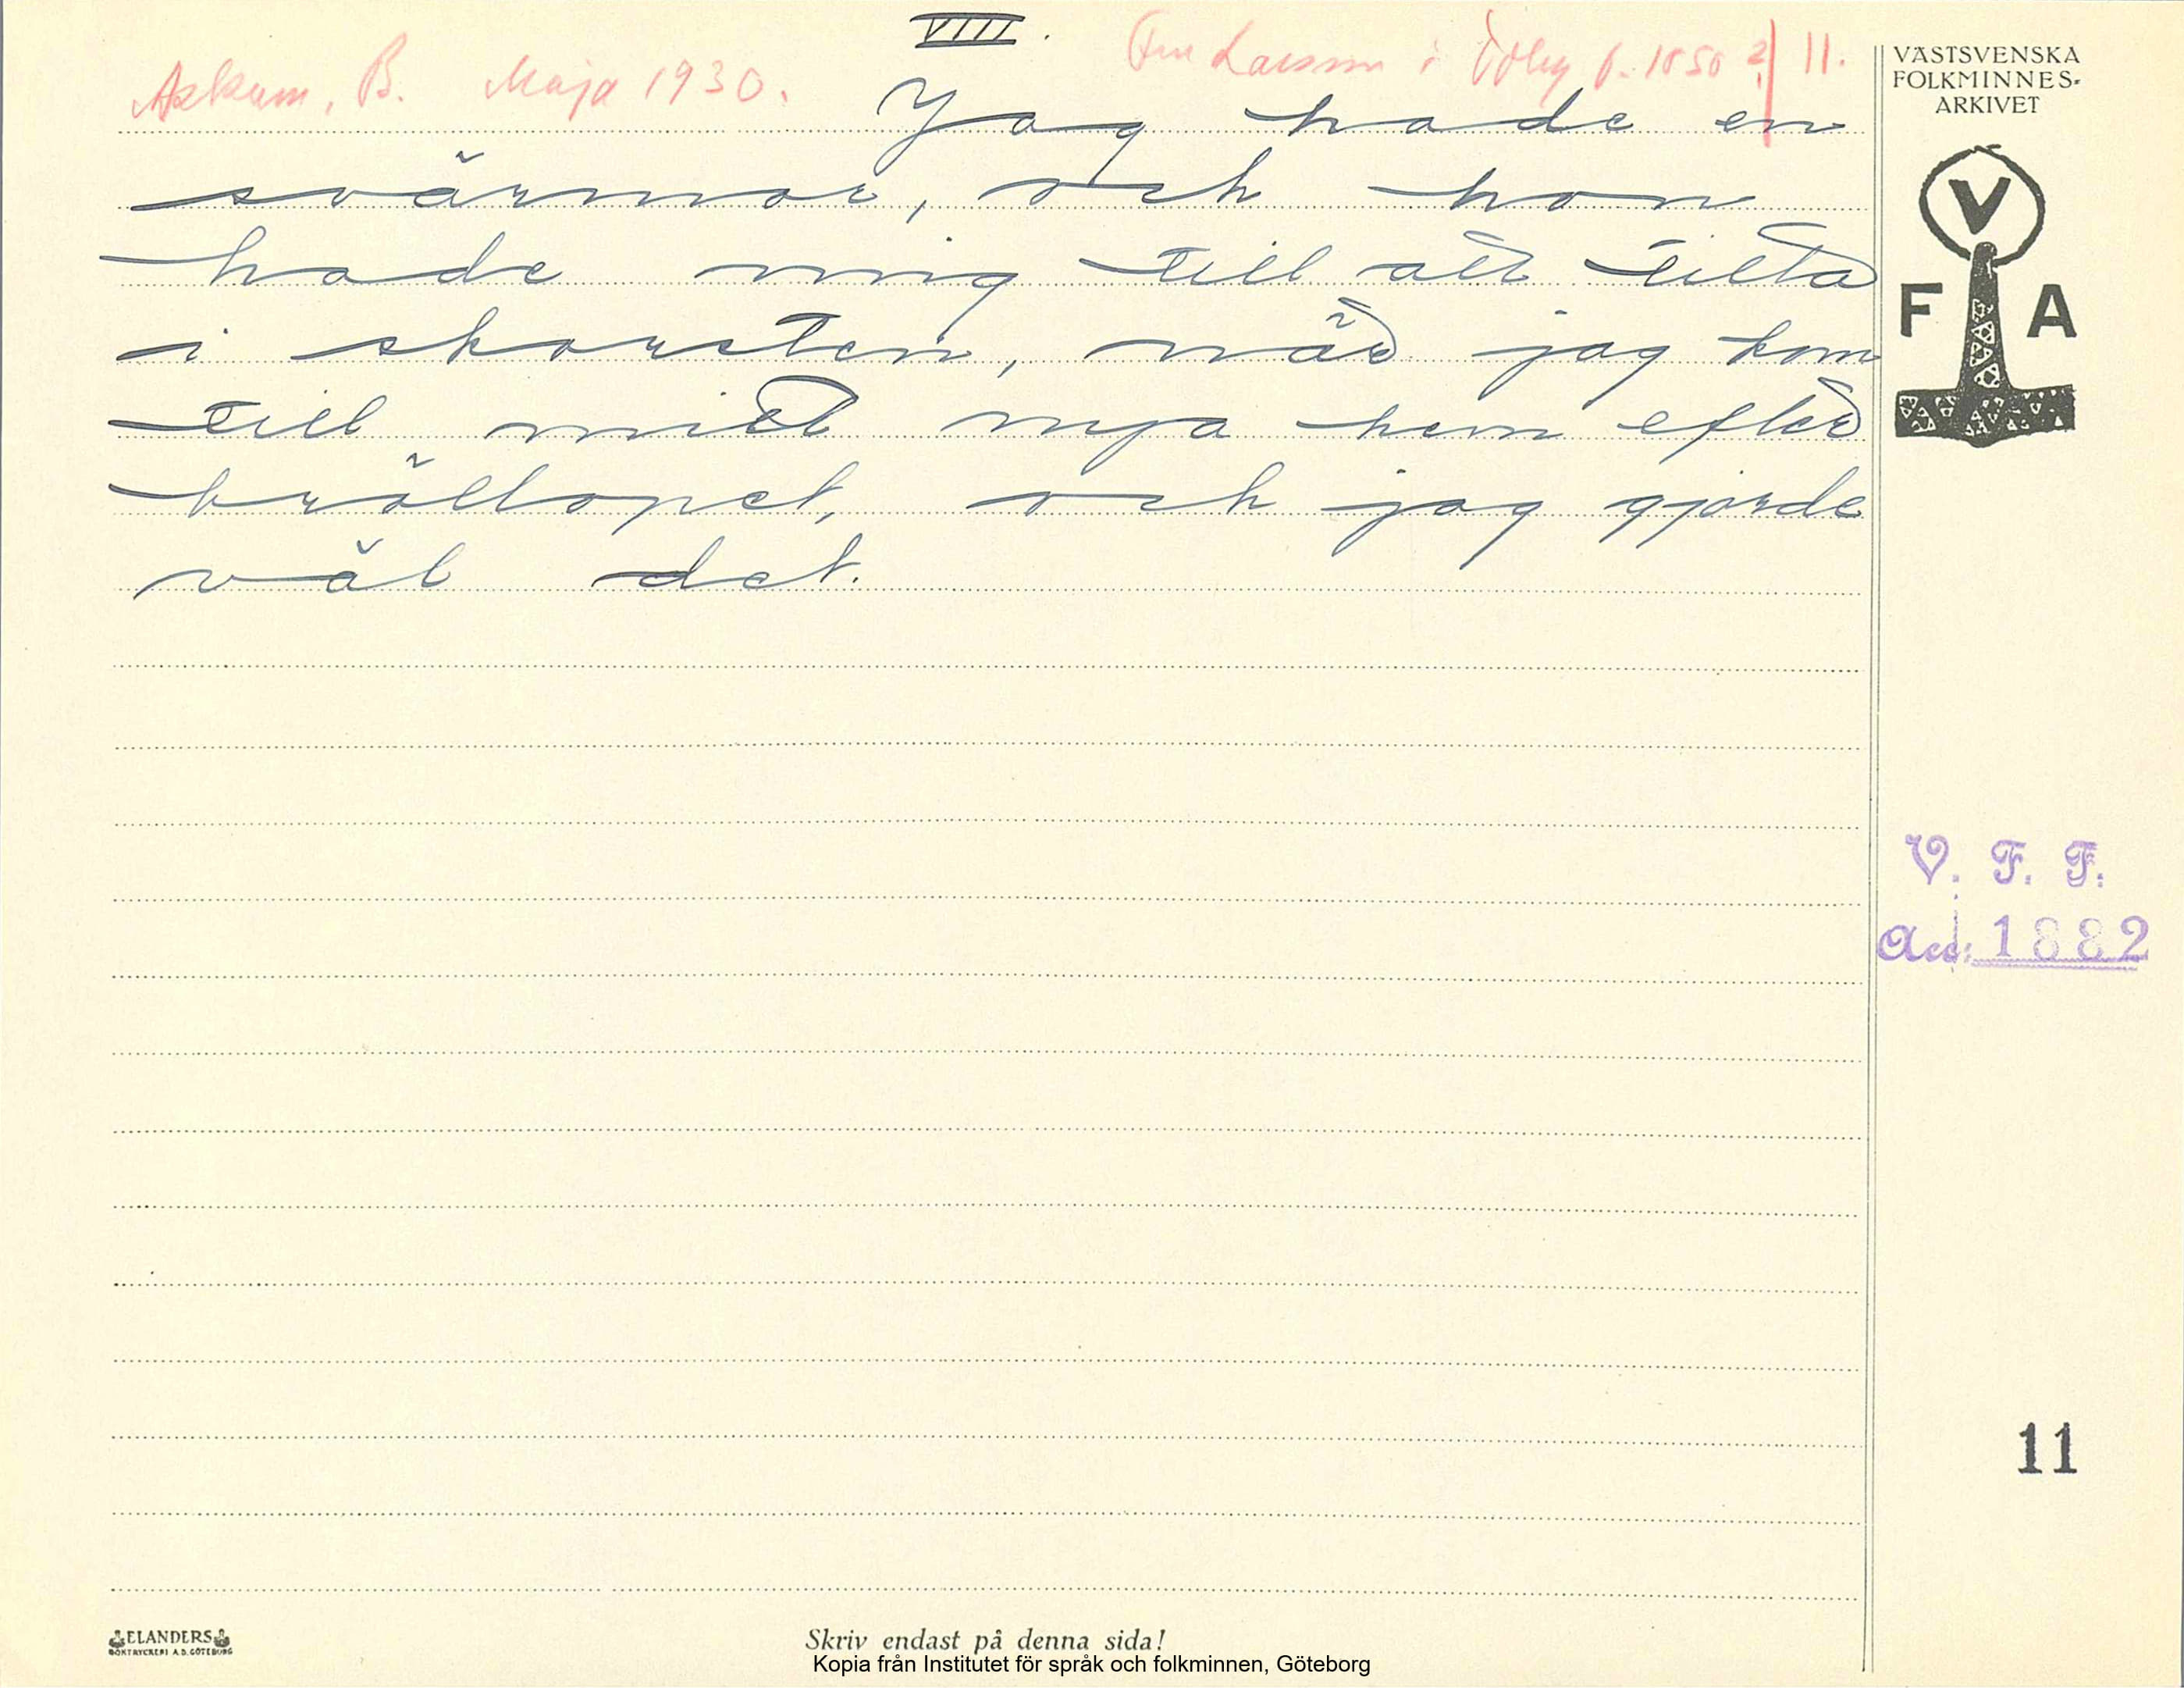 VIII.
Askum, B. Maja 1930. Fru Larsson i Ödby f. 1850 ? 11.
Jag hade en
svärmor, och hon
hade mig till att titta
i skorsten, när jag kom
till mitt nya hem efter
bröllopet, och jag gjorde
väl det.
VÄSTSVENSKA
FOLKMINNES-
ARKIVET
V
F A
V. F. F.
Acc: 1882
11
ELANDERS
BOKTRYCKERI A.B. GÖTEBORG
Skriv endast på denna sida!
Kopia från Institutet för språk och folkminnen, Göteborg